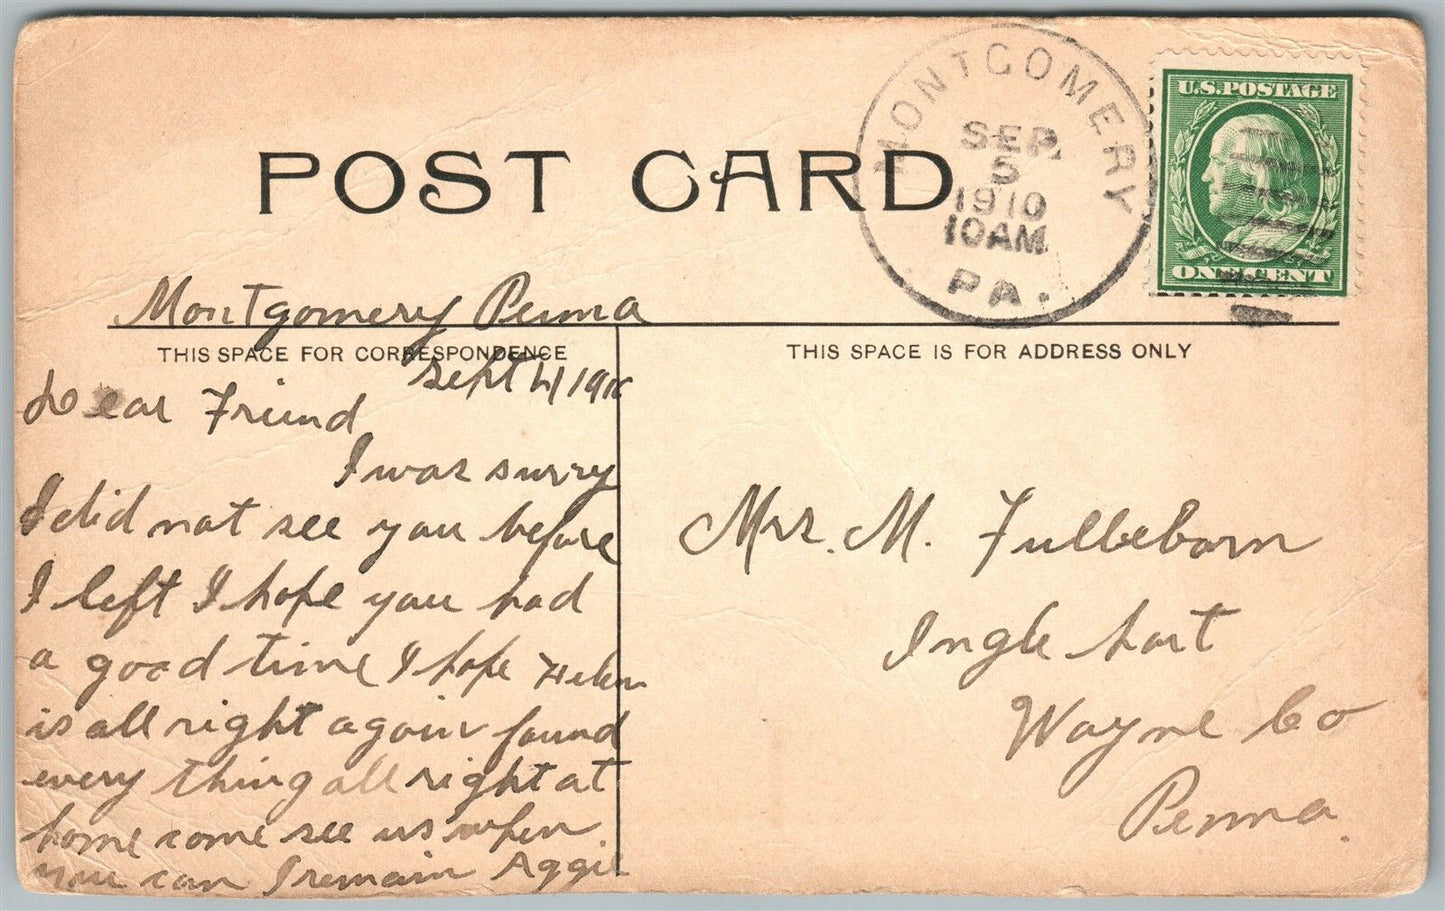 POST CARD
MONTGOMERY
SEP.
5
1910
10AM
PA.
U.S. POSTAGE
ONE CENT
Montgomery Penna
THIS SPACE FOR CORRESPONDENCE
THIS SPACE IS FOR ADDRESS ONLY
Sept 4 1910
Dear Friend
I was surry
I did not see you before
I left I hope you had
a good time I hope Helen
is all right again found
every thing all right at
home come see us when
you can I remain Aggie
Mrs. M. Fulleborn
Ingle hart
Wayne Co
Penna.